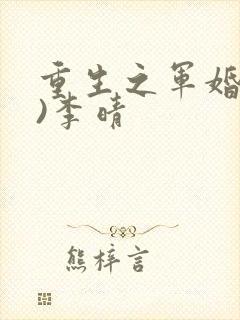 重生之军婚
)李晴
熊梓言